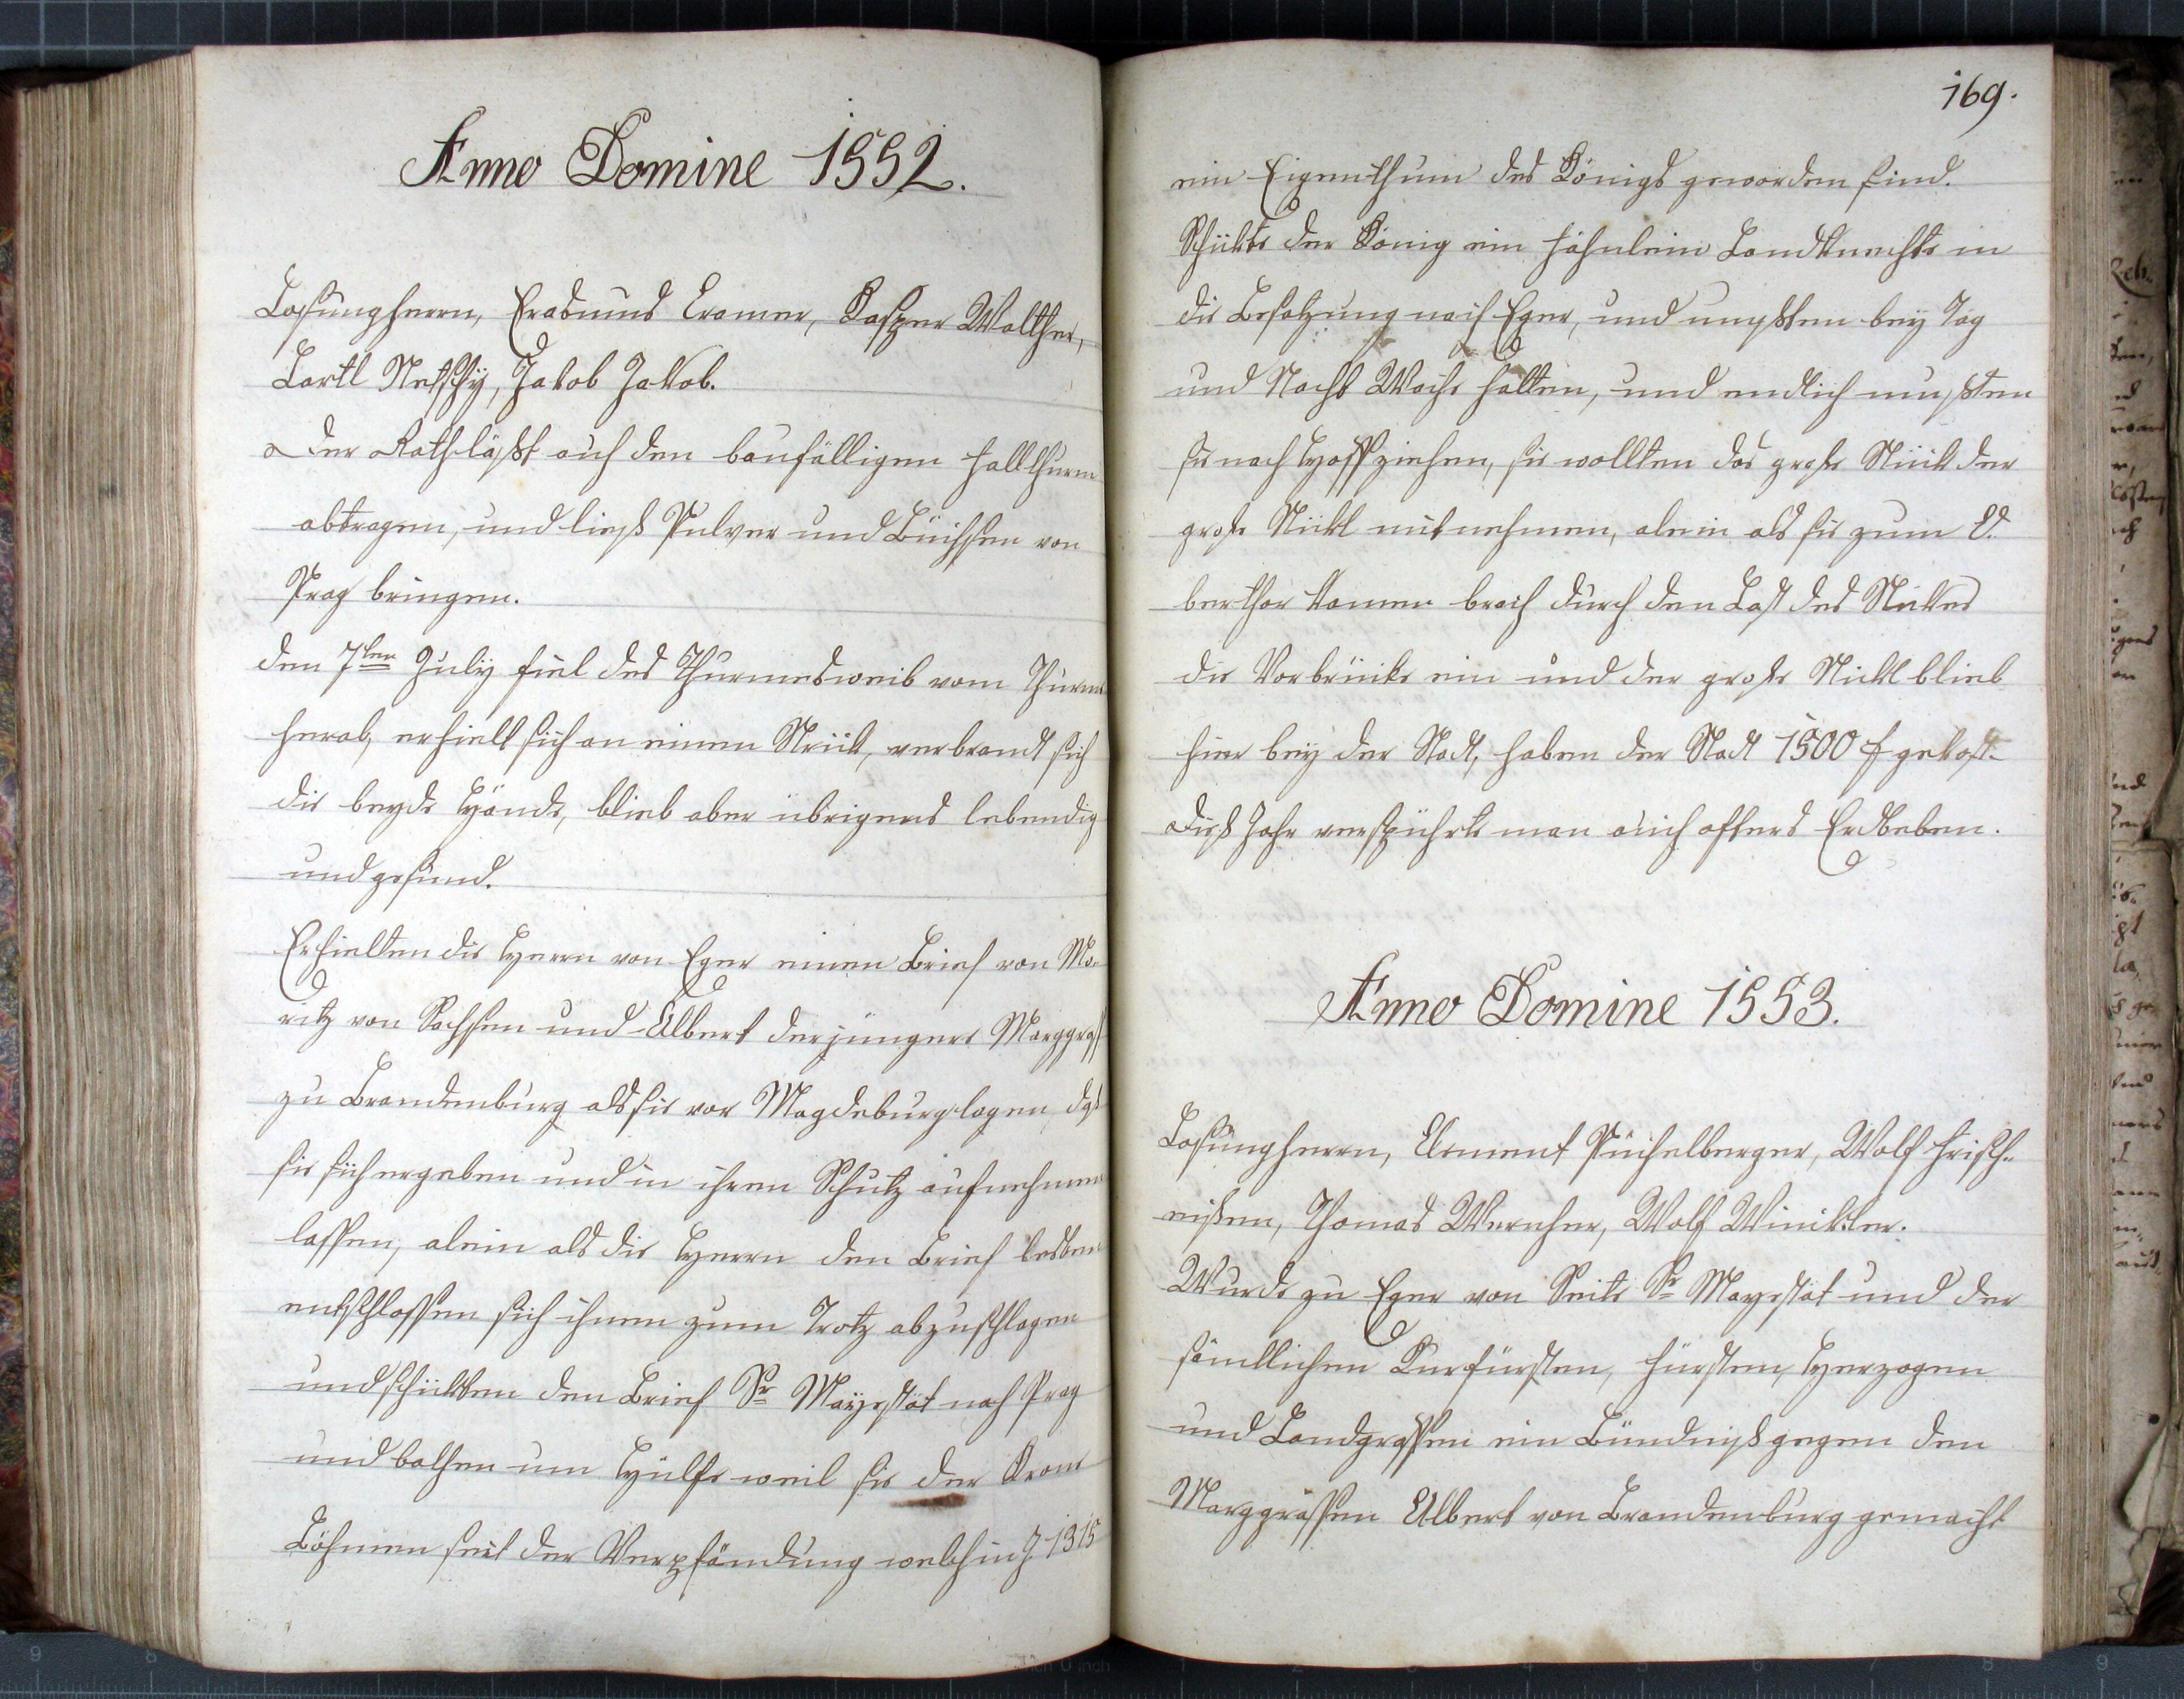 Anno Domine 1552.
Losungherrn, Erasmus Cramer, Kasper Walther,
Bartl Netschÿ, Jakob Jakob.
Der Rath läßt auch den baufälligen Hallthurm
abtragen, und ließ Pulver und Büchsen von
Prag bringen.
den 7ten July fiel des Thurmersweib vom Thurm
herab, erhielt sich an einem Strick, verbrandt sich
die beyde Hände, blieb aber übrigens lebendig
und gesund.
Erhielten die Herrn von Eger einen Brief von Mo-
ritz von Sachsen und Albert der jüngere Marggraff
zu Brandenburg als sie vor Magdeburg lagen, daß
sie sich ergeben und in ihren Schutz aufnehmen
lassen, alein als die Herrn den Brief lesten
entschlossen sich ihnen zum Trotz abzuschlagen
und schickten den Brief Sr Mayestät nach Prag
und bathen um Hülfe weil sie der Krone
Böhmen seit der Verpfändung welch in J. 1315
169.
ein Eigenthum des Königs geworden sind.
Schickte der König ein Fähnlein Landknechte in
die Besatzung nach Eger, und mußten bey Tag
und Nacht Wache halten, und endlich mußten
sie nach Hoff ziehen, sie wollten das große Stück der
große Nickl mitnehmen, alein als sie zum O-
berthor kamen brach durch den Last des Stückes
die Vorbrücke ein und der große Nickl blieb
hier bey der Stadt, haben der Stadt 1500 f gekost.
Dieß Jahr verspührte man auch offters Erdbeben.
Anno Domine 1553.
Losungherrn, Clement Püchelberger, Wolf Frisch-
eisen, Thomas Wernher, Wolf Winkler.
Wurde zu Eger von Seite Sr Mayestät und der
sämtlichen Kurfürsten, Fürsten, Herzogen
und Landgraffen ein Bündniß gegen den
Marggraffen Albert von Brandenburg gemacht